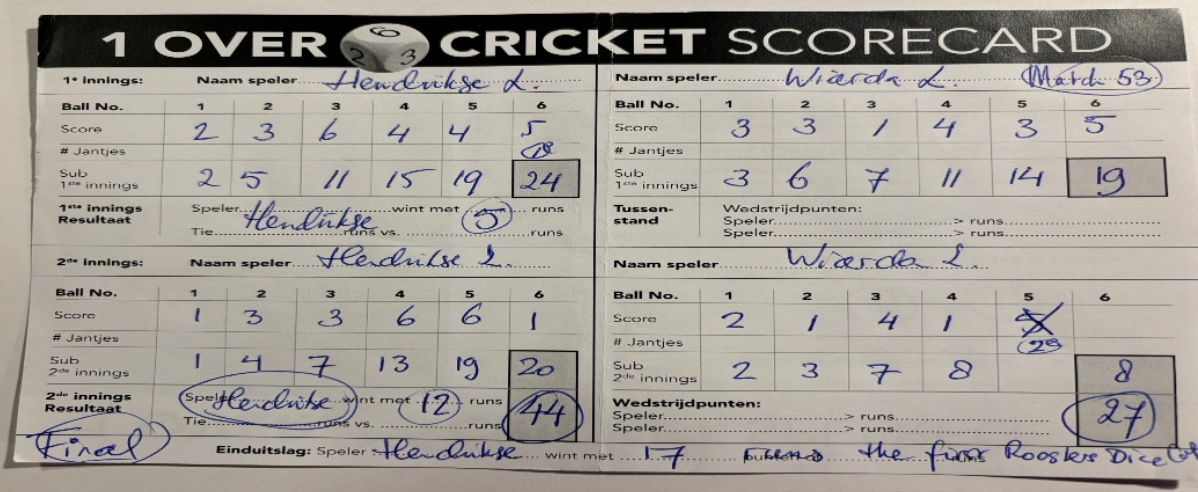 1 OVER CRICKET SCORECARD
1e innings: Naam speler Hendrikse L.
Ball No. 1 2 3 4 5 6
Score 2 3 6 4 4 5
# Jantjes
Sub 1ste innings 2 5 11 15 19 24
1ste innings Resultaat Speler Hendrikse wint met 5 runs
Tie runs vs. runs
Naam speler Wiarda L. Match 53
Ball No. 1 2 3 4 5 6
Score 3 3 1 4 3 5
# Jantjes
Sub 1ste innings 3 6 7 11 14 19
Tussen-stand Wedstrijdpunten:
Speler > runs
Speler > runs
2de innings: Naam speler Hendrikse L.
Ball No. 1 2 3 4 5 6
Score 1 3 3 6 6 1
# Jantjes
Sub 2de innings 1 4 7 13 19 20
2de innings Resultaat Speler Hendrikse wint met 12 runs 44
Tie runs vs. runs
Naam speler Wiarda L.
Ball No. 1 2 3 4 5 6
Score 2 1 4 1 5
# Jantjes
Sub 2de innings 2 3 7 8 8
Wedstrijdpunten: 27
Speler > runs
Speler > runs
Final Einduitslag: Speler Hendrikse wint met 17 runs the first Roosters Dice